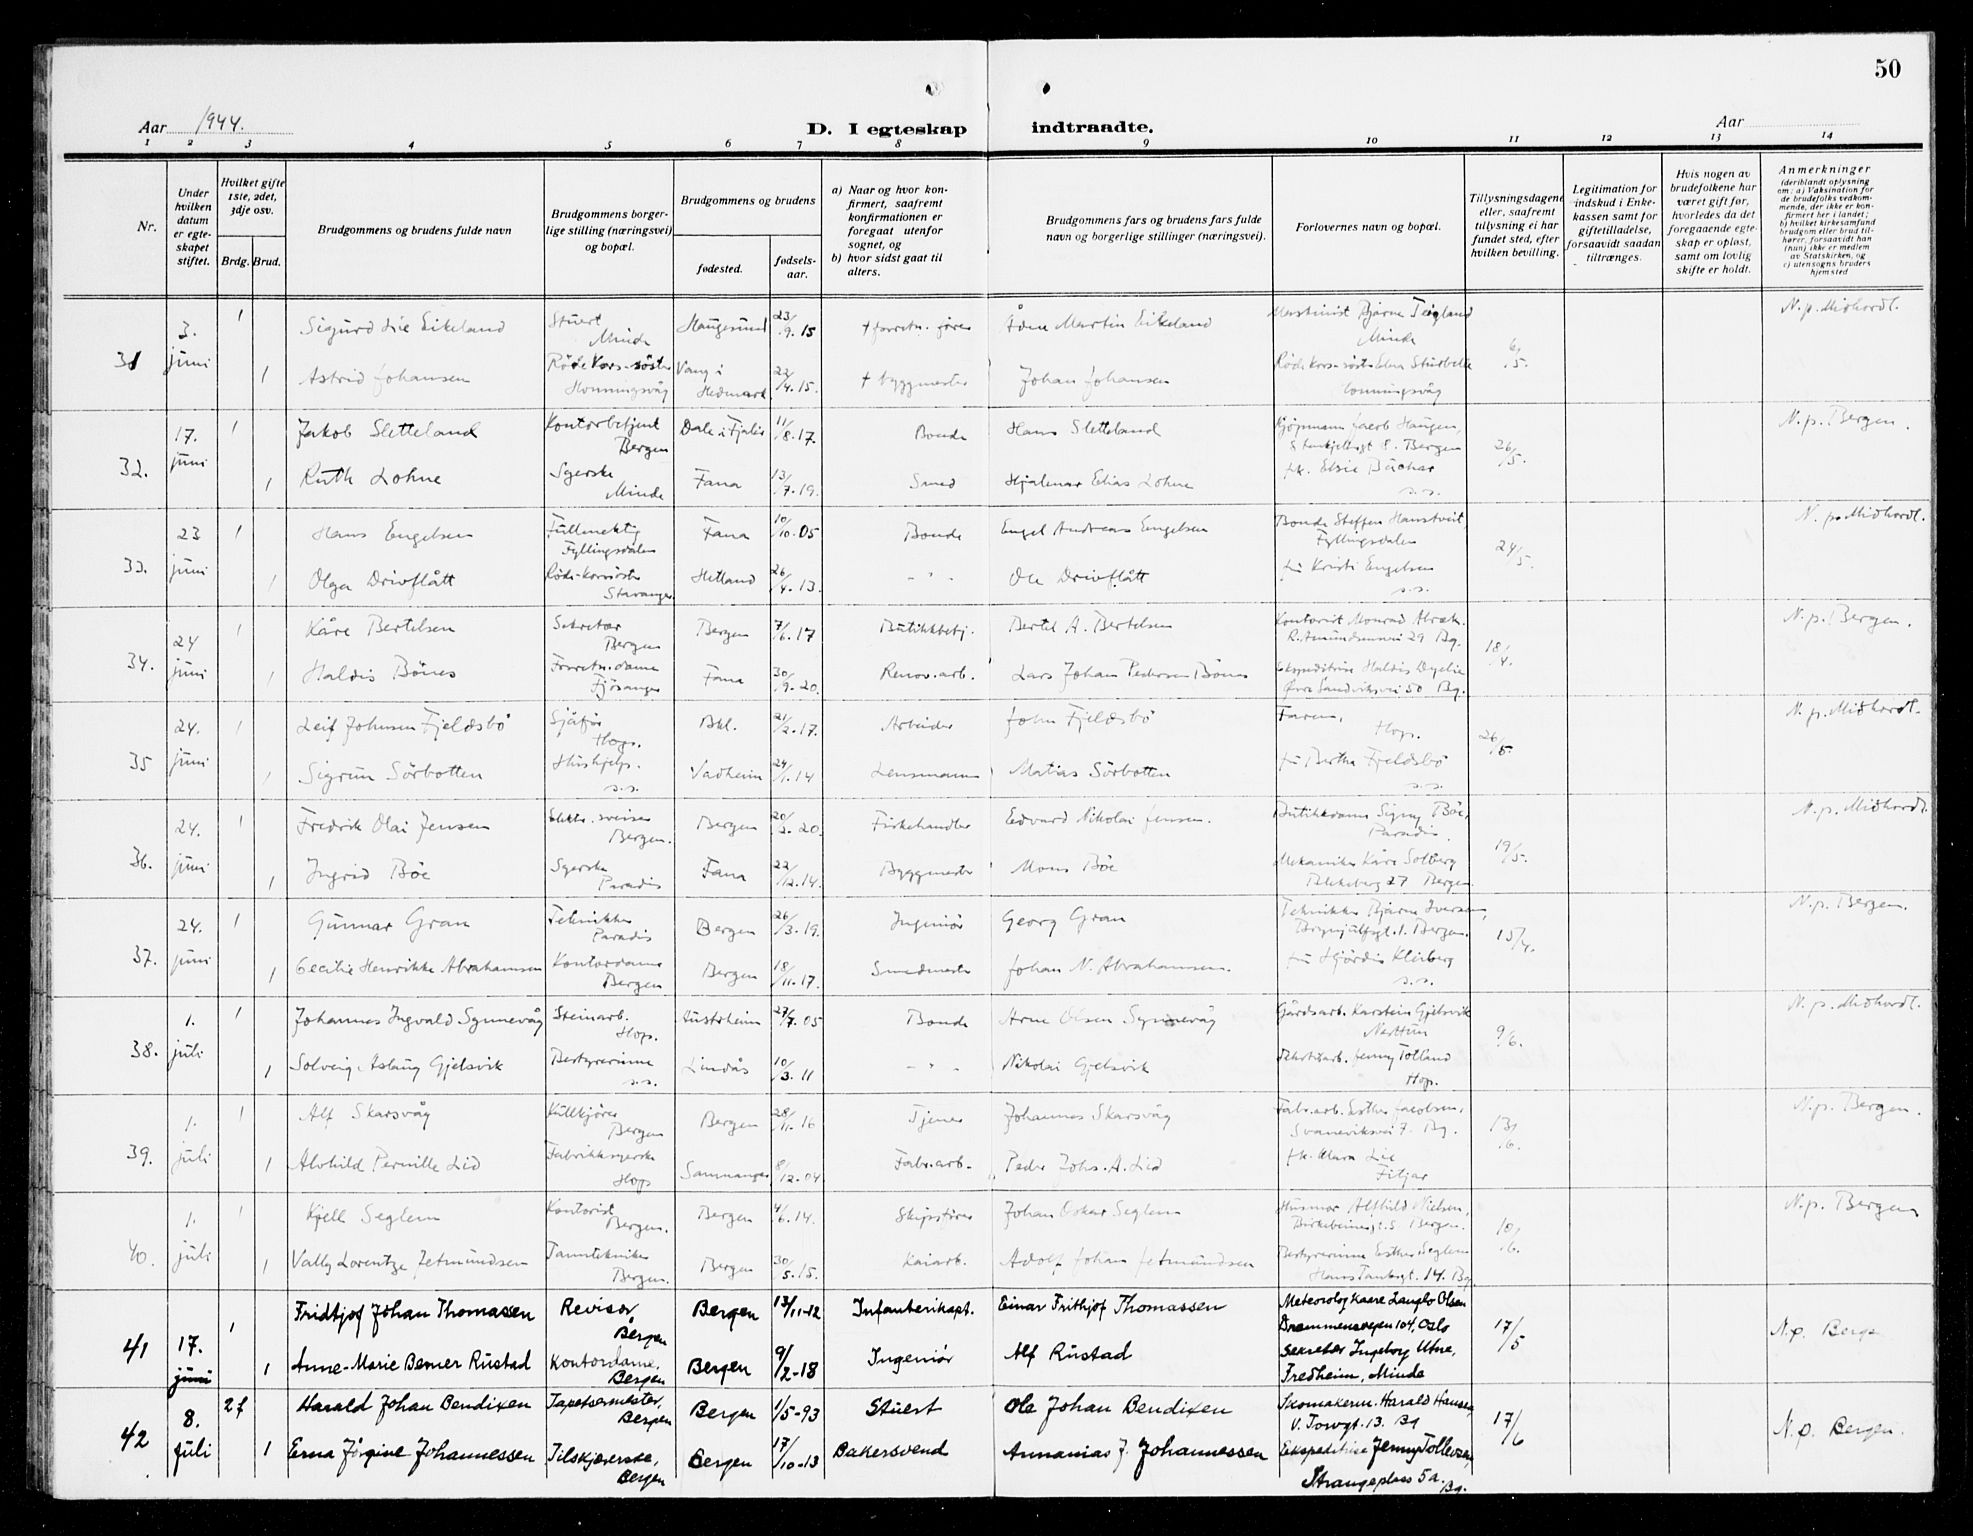 50
Aar 1944.
D. I egteskap indtraadte.
Aar
1 2 3 4 5 6 7 8 9 10 11 12 13 14
Nr.
Under hvilken datum er egteskapet stiftet.
Hvilket gifte 1ste, 2det, 3dje osv.
Brdg. Brud.
Brudgommens og brudens fulde navn
Brudgommens borgerlige stilling (næringsvei) og bopæl.
Brudgommens og brudens
fødested.
fødselsaar.
a) Naar og hvor konfirmert, saafremt konfirmationen er foregaat utenfor sognet, og
b) hvor sidst gaat til alters.
Brudgommens fars og brudens fars fulde navn og borgerlige stillinger (næringsvei).
Forlovernes navn og bopæl.
Tillysningsdagene eller, saafremt tillysning ei har fundet sted, efter hvilken bevilling.
Legitimation for indskud i Enkekassen samt for giftetilladelse, forsaavidt saadan tiltrænges.
Hvis nogen av brudefolkene har været gift før, hvorledes da det foregaaende egteskap er opløst, samt om lovlig skifte er holdt.
Anmerkninger (deriblandt oplysning om: a) Vaksination for de brudefolks vedkommende, der ikke er konfirmert her i landet; b) hvilket kirkesamfund brudgom eller brud tilhører, forsaavidt han (hun) ikke er medlem av Statskirken, og c) utensogns bruders hjemsted
31 3. juni 1 Sigurd Lie Eikeland Stuert Minde Haugesund 23/9.15 + forretn. fører Ådne Martin Eikeland Maskinist Bjarne Teigland Minde 6/5. N.p. Midhordl.
1 Astrid Johansen Røde Kors-søster Honningsvåg Vang i Hedmark 22/4.15. + byggmester Johan Johansen Røde Kors-søster Honningsvåg
32. 17. juni 1 Jakob Sletteland Kontorbetjent Bergen Dale i Fjaler 11/8.17. Bonde Hans Sletteland Kjøpmann Jacob Haugen, 8. Bergen 26/5. N.p. Bergen.
1 Ruth Lohne Syerske Minde Fana 13/7.19. Smed Hjalmar Elias Lohne frk. Elsie s.s.
33. 23 juni 1 Hans Engelsen Fullmektig Fyllingsdalen Fana 10/10.05 Bonde Engel Andreas Engelsen Bonde Steffen Hamstveit Fyllingsdalen 24/5. N.p. Midhordl.
1 Olga Drivflått Røde-korssøster Stavanger Hetland 26/4.13. - " - Ole Drivflått fru Kristi Engelsen s.s.
34. 24 juni 1 Kåre Bertelsen Sekretær Bergen Bergen 7/6.17 Butikkbetj. Bertel A. Bertelsen Kontorist Monrad Abrah. R. Amundsensvei 29 Bg. 18/4. N.p. Bergen.
1 Haldis Bönes Forretn. dame Fjøsanger Fana 30/9.20. Renov. arb. Lars Johan Pedersen Bönes Ekspeditrise Haldis Øvre Sandviksvei 50 Bg.
35 24. juni 1 Leif Johnsen Fjeldsbö Sjåfør Hop. Bkl. 21/2.17. Arbeider John Fjeldsbö Faren, Hop. 26/5. N.p. Midhordl.
1 Sigrun Sörbotten Hushjelp. s.s. Vadheim 24/1.14 Lensmann Matias Sörbotten fru Berta Fjeldsbö s.s.
36. 24. juni 1 Fredrik Olai Jensen Elektr. sveiser Bergen. Bergen 20/2.20. Fiskehandler Edvard Nikolai Jensen. Butikkdame Signy Böe, Paradis 19/5. N.p. Midhordl.
1 Ingrid Böe Syerske Paradis Fana 22/12.14. Byggmester Mons Böe Mekaniker Kåre Solberg 27 Bergen
37. 24. juni 1 Gunnar Gran Tekniker Paradis Bergen 26/3.19. Ingeniør Georg Gran Tekniker Bjarne Iversen, Brynjulfsgt. 1. Bergen. 15/4. N.p. Bergen.
1 Cecilie Henrikke Abrahamsen Kontordame Bergen Bergen 18/11.17. Smedmester Johan N. Abrahamsen. fru Hjördis Kleiberg s.s.
38. 1. juli 1 Johannes Ingvald Synnevåg Steinarb. Hop. Austrheim 27/7.05 Bonde Arne Olsen Synnevåg Gårdsarb. Karstein Gjelsvik Nesttun 9/6. N.p. Midhordl.
1 Solveig Aslaug Gjelsvik Bestyrerinne s.s. Lindås 10/3.11 - " - Nikolai Gjelsvik Fabrikarb. Jenny Tolland Hop.
39. 1. juli 1 Alf Skarsvåg Kullkjører Bergen Bergen 28/11.16 Tjener Johannes Skarsvåg Fabr. arb. Esther Jacobsen, Svaneviksvei 7. Bg. 13/6. N.p. Bergen.
1 Alvhild Pernille Lid Fabrikksyerske Hop Samnanger 8/12.04 Fabr. arb. Peder Johs. A. Lid frk. Mara Lie Fitjar
40. 1. juli 1 Kjell Seglem Kontorist Bergen. Bergen 4/6.14. Skipsfører Johan Oskar Seglem Husmor Alfhild Nielsen, Birkebeinergt. 5 Bergen. 10/6. N.p. Bergen
1 Vally Lorentze Jetmundsen Tanntekniker Bergen. Bergen 30/5.15. Kaiarb. Adolf Johan Jetmundsen Bestyrerinne Esther Seglem Hans Tanksgt. 14. Bg.
41 17. juni 1 Fridtjof Johan Thomassen Revisor Bergen Bergen 13/11-12 Infanterikapt. Einar Frithjof Thomassen Meteorolog Kaare Langlo Olsen Drammensvegen 104, Oslo 17/5 N.p. Bergen
1 Anne-Marie Berner Rustad Kontordame, Bergen Bergen 9/2-18 Ingeniør Alf Rustad Sekretær Ingeborg Utne, Fredheim, Minde
42 8. juli 2 f Harald Johan Bendixen Tapetsermester, Bergen Bergen 1/5-93 Stuert Ole Johan Bendixen Skomakerm. Harald Hansen, V. Torvgt. 13. Bg 17/6 N.p. Bergen.
1 Erna Jørgine Johannessen Tilskjærerske, Bergen Bergen 17/10-13 Bakersvend Annanias J. Johannessen Ekspeditrise Jenny Tollevsen, Strangeplass 5a. Bg.